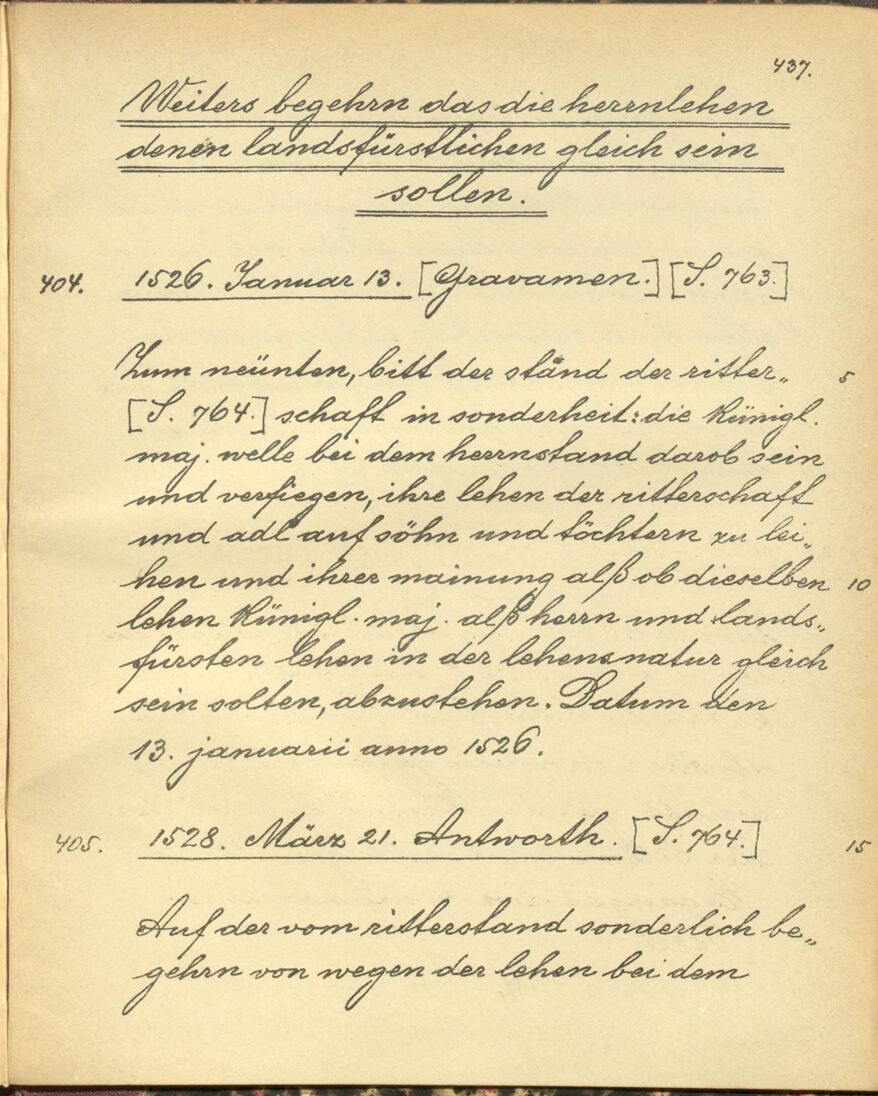 437.
Weiters begehrn das die herrnlehen
denen landsfürstlichen gleich sein
sollen.
404. 1526. Januar 13. [Gravamen.] [S. 763.]
Zum neünten, bitt der ständ der ritter„ 5
[S. 764.] schaft in sonderheit: die Künigl.
maj. welle bei dem herrnstand darob sein
und verfiegen, ihre lehen der ritterschaft
und adl auf söhn und töchtern zu lei„
hen und ihrer mainung alß ob dieselben 10
lehen Künigl. maj. alß herrn und lands„
fürsten lehen in der lehensnatur gleich
sein solten, abzustehen. Datum den
13. januarii anno 1526.
405. 1528. März 21. Antworth. [S. 764.] 15
Auf der vom ritterstand sonderlich be„
gehrn von wegen der lehen bei dem